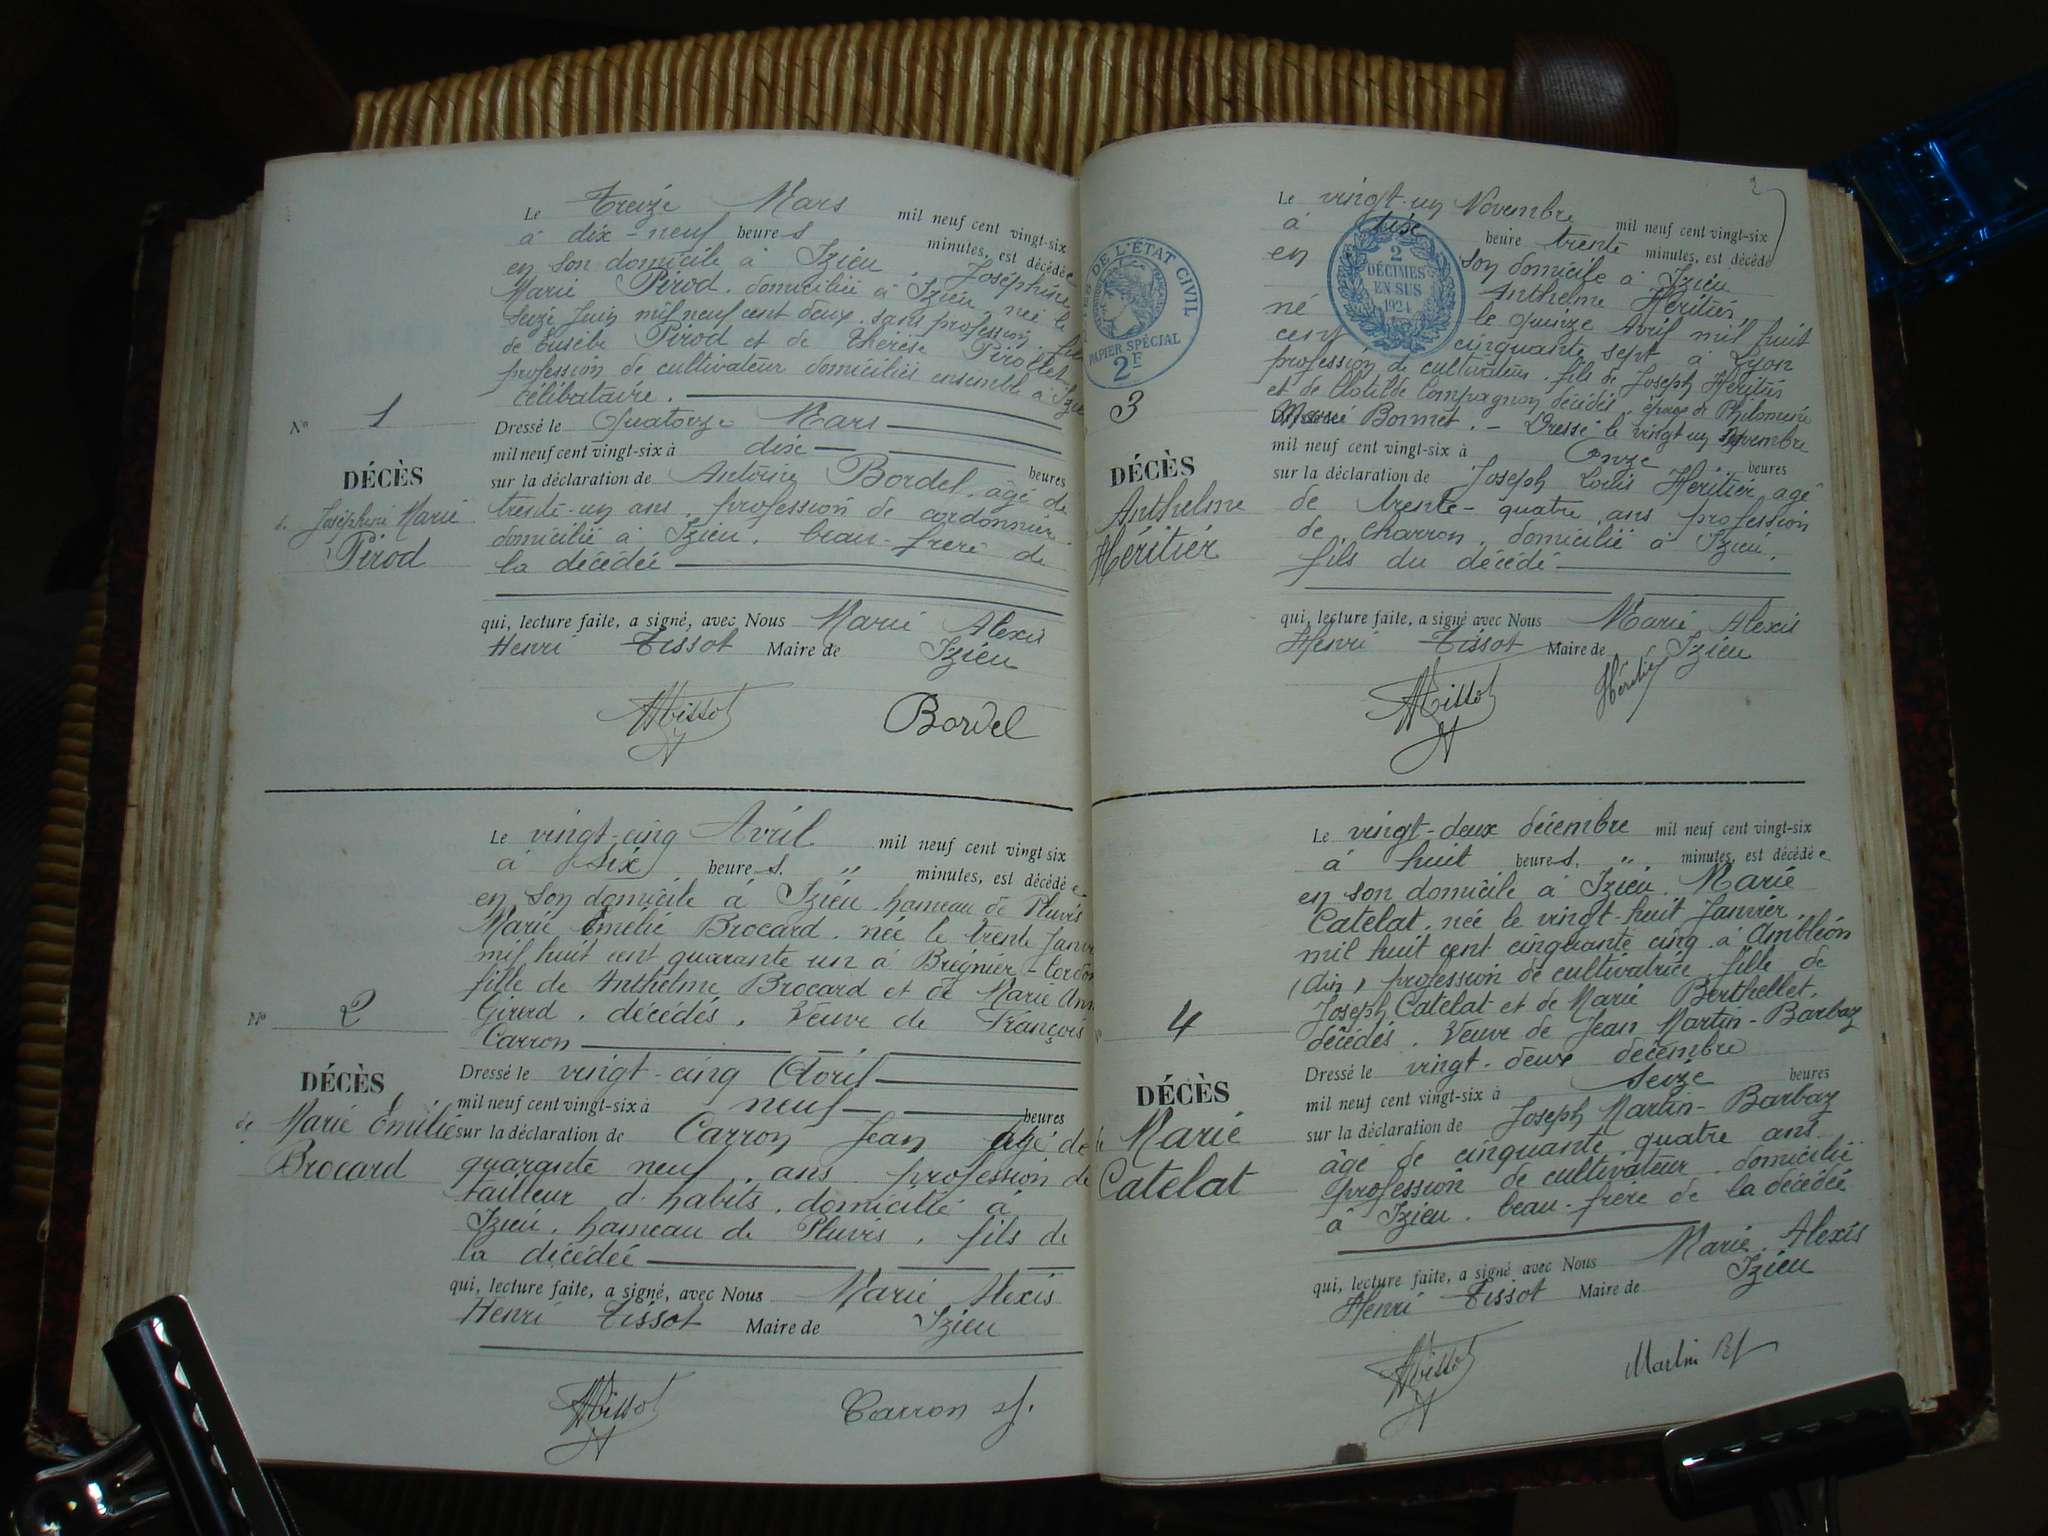 Le treize Mars mil neuf cent vingt-six
à dix-neuf heures minutes, est décédée
en son domicile à Izieu, Joséphine
Marie Pirod, domiciliée à Izieu, née le
seize Juin mil neuf cent deux, sans profession, fille
de Eusèbe Pirod et de Thérèse Pirollet
profession de cultivateur domiciliés ensemble à Izieu
célibataire.
Dressé le Quatorze Mars
mil neuf cent vingt-six à dix heures
sur la déclaration de Antoine Bordel, âgé de
trente-un ans, profession de cordonnier
domicilié à Izieu, beau-frère de
la décédée
qui, lecture faite, a signé, avec Nous Marie Alexis
Henri Tissot Maire de Izieu
HTissot Bordel
N° 1
DÉCÈS
de Joséphine Marie
Pirod
Le vingt-cinq Avril mil neuf cent vingt six
à six heures. " minutes, est décédée
en son domicile à Izieu, hameau de Pluvis
Marie Emélie Brocard, née le trente Janv
mil huit cent quarante un à Brégnier-Cordon
fille de Anthelme Brocard et de Marie Ann
Girerd, décédés, Veuve de François
Carron
Dressé le vingt-cinq Avril
mil neuf cent vingt-six à neuf heures
sur la déclaration de Carron Jean âgé de
quarante neuf ans profession de
tailleur d'habits, domicilié à
Izieu, hameau de Pluvis, fils de
la décédée
qui, lecture faite, a signé, avec Nous Marie Alexis
Henri Tissot Maire de Izieu
HTissot Carron
N° 2
DÉCÈS
de Marie Emilie
Brocard
2
Le vingt-un Novembre mil neuf cent vingt-six
à dix heure trente minutes, est décédé
en son domicile à Izieu
Anthelme Héritier,
né le quinze Avril mil huit
cent cinquante sept à Lyon
profession de cultivateur, fils de Joseph Héritier
et de Clotilde Compagnon décédés, époux de Philomène
Marie Bonnet. – Dressé le vingt un Novembre
mil neuf cent vingt-six à Onze heures
sur la déclaration de Joseph Louis Héritier, agé
de trente-quatre ans profession
de charron, domicilié à Izieu,
fils du décédé
qui, lecture faite, a signé, avec Nous Marie Alexis
Henri Tissot Maire de Izieu
HTissot Héritier
DE L'ÉTAT CIVIL
PAPIER SPÉCIAL
2F
2
DÉCIMES
EN SUS
1924
3
DÉCÈS
Anthelme
Héritier
Le vingt-deux décembre mil neuf cent vingt-six
à huit heures. " minutes, est décédée
en son domicile à Izieu, Marie
Catelat, née le vingt-huit Janvier
mil huit cent cinquante cinq à Ambléon
(Ain) profession de cultivatrice, fille de
Joseph Catelat et de Marie Berthellet,
décédés, Veuve de Jean Martin-Barbaz
Dressé le vingt-deux décembre
mil neuf cent vingt-six à seize heures
sur la déclaration de Joseph Martin-Barbaz
âgé de cinquante quatre ans
profession de cultivateur, domicilié
à Izieu, beau-frère de la décédée
qui, lecture faite, a signé avec Nous Marie Alexis
Henri Tissot Maire de Izieu
HTissot Martin
4
DÉCÈS
Marie
Catelat